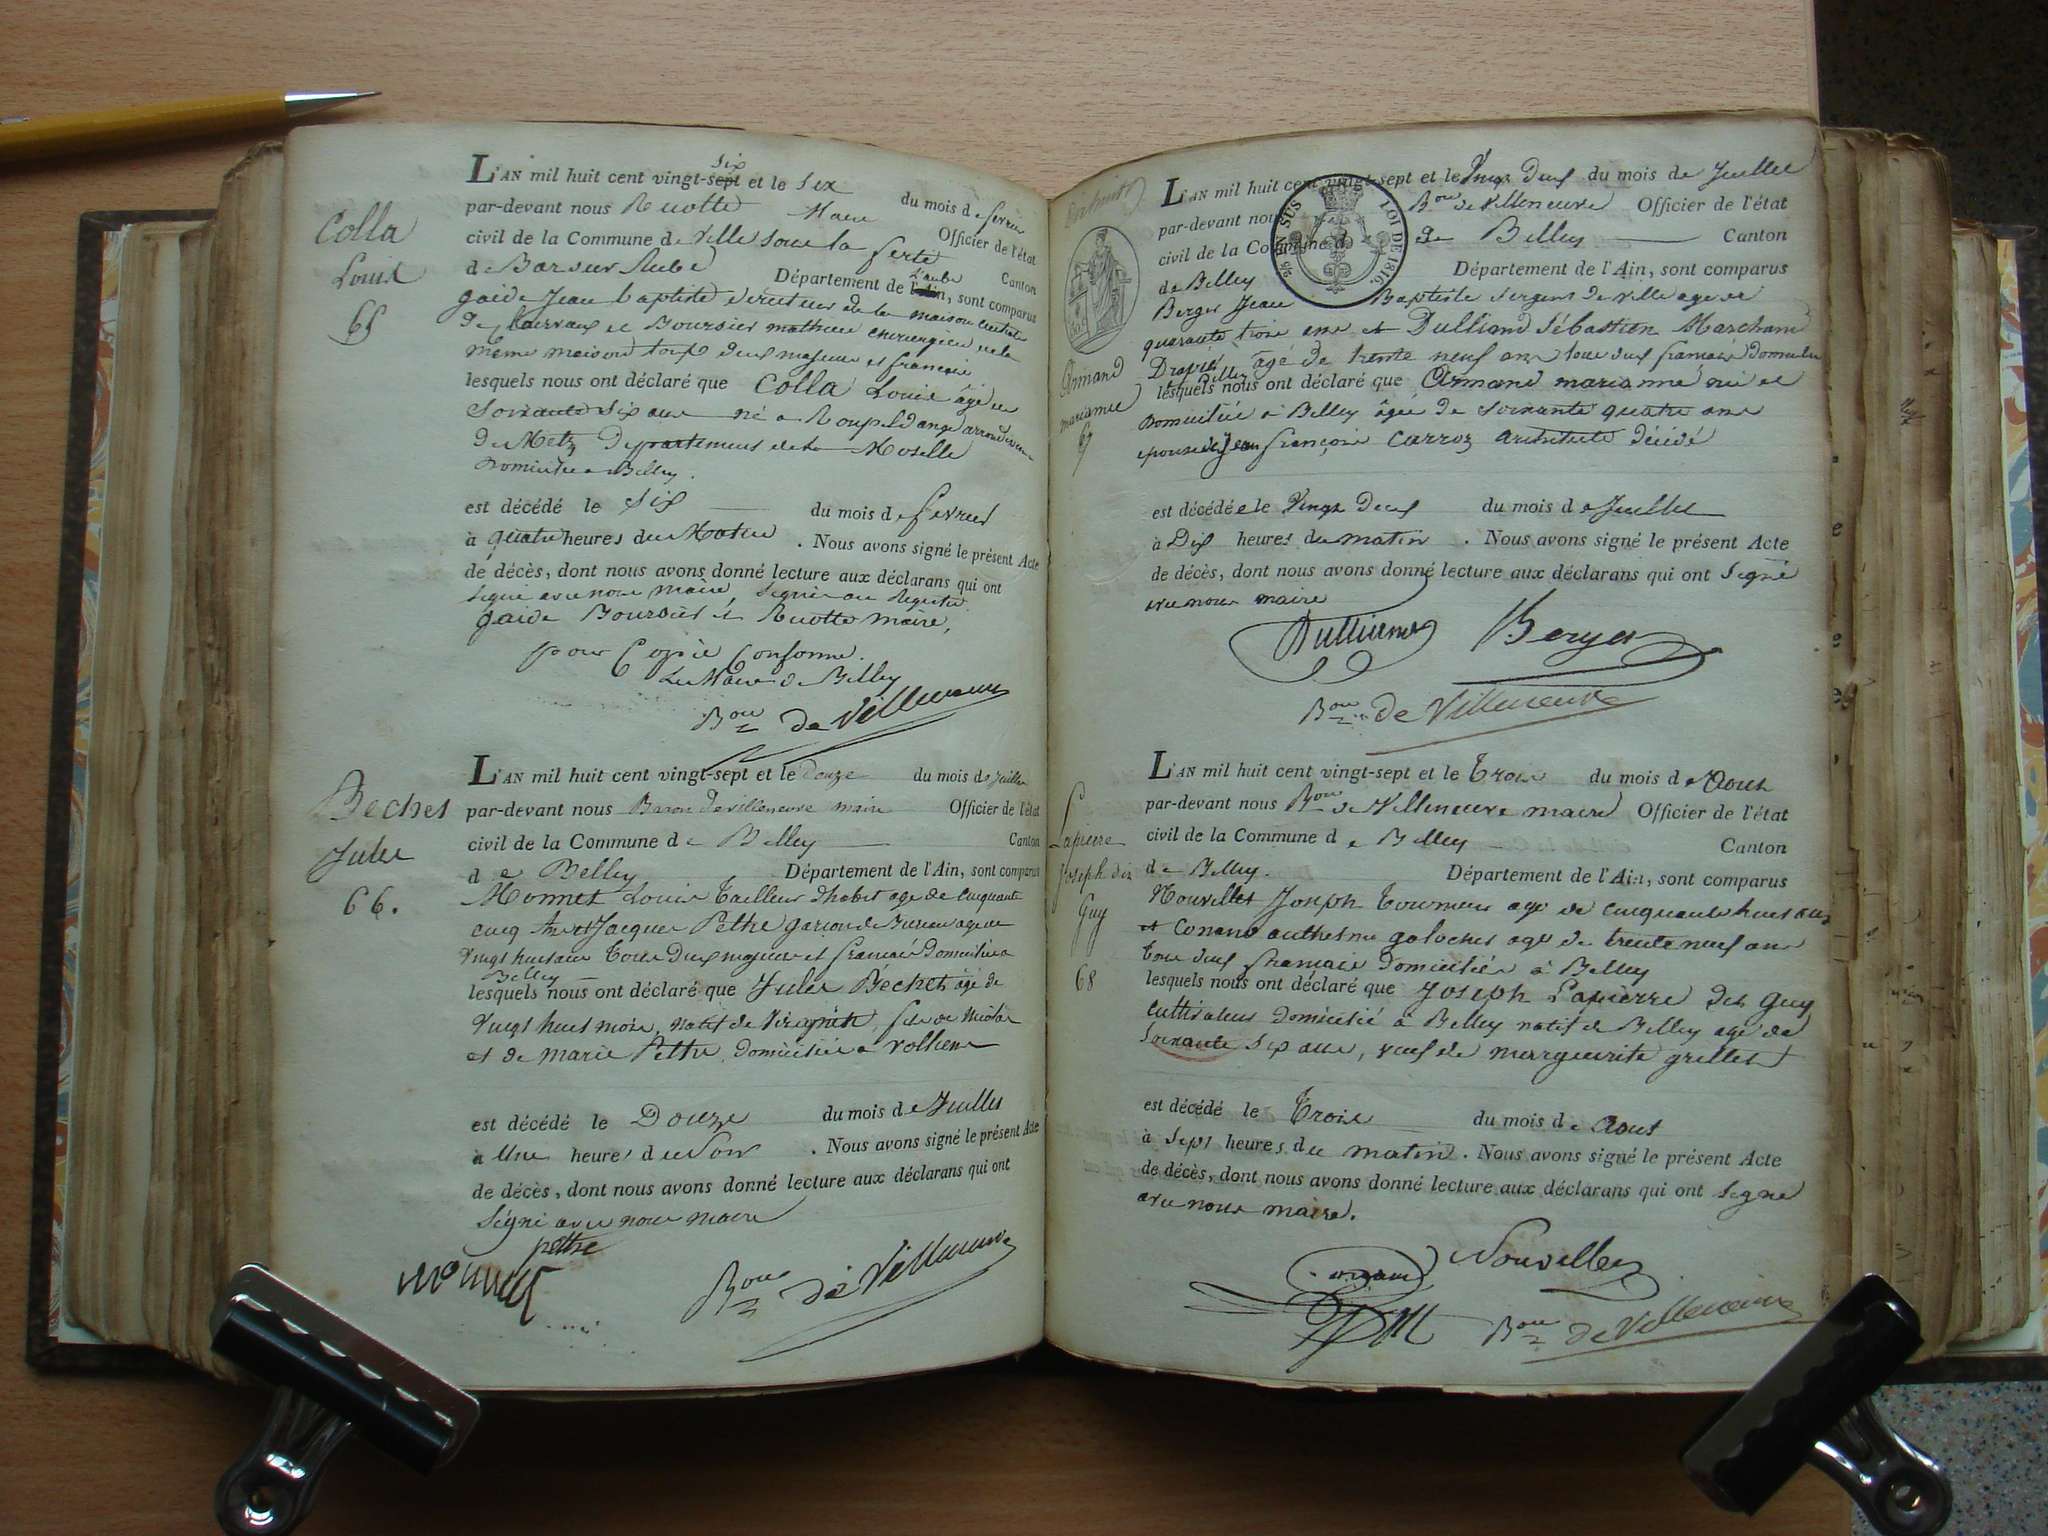 Colla
Louis
65
L'AN mil huit cent vingt-sept six et le six du mois de fevrier
par-devant nous Ruotte Maire Officier de l'état
civil de la Commune de Ville sous la ferté Canton
de Bar sur Aube Département de l'Ain L'aube, sont comparus
gaide Jean baptiste directeur de la maison centrale
de Clairvaux et Boursier mathieu chirurgien de la
même maison tous deux majeurs et francais
lesquels nous ont déclaré que Colla Louis âgé de
Soixante Six ans né a
de Metz Departement de la Moselle
Domicilié a Belley.
est décédé le Six du mois de fevrier
à quatre heures du Matin. Nous avons signé le présent Acte
de décès, dont nous avons donné lecture aux déclarans qui ont
signé avec nous maire, signés au Registre
gaide Boursier et Ruotte maire,
pour Copie Conforme.
Le Maire de Belley
Bon de Villeneuve
Bechet
Jules
66.
L'AN mil huit cent vingt-sept et le douze du mois de juillet
par-devant nous Baron de villeneuve maire Officier de l'état
civil de la Commune de Belley Canton
de Belley Département de l'Ain, sont comparus
Monnet Louis Tailleur d'habit age de cinquante
cinq Ans et Jacques Pettre garcon de Bureau age de
vingt huit ans Tous Deux majeurs et francais Domiciliés a
Belley
lesquels nous ont déclaré que Jules Béchet âgé de
vingt huit mois, natif de Virignin, fils de Nicolas
et de Marie Pettre, domiciliée a
est décédé le Douze du mois de Juillet
à Une heure du Soir. Nous avons signé le présent Acte
de décès, dont nous avons donné lecture aux déclarans qui ont
Signé avec nous maire
pettre
monnet
Bon de Villeneuve
Armand
marianne
67
L'AN mil huit cent vingt-sept et le Vingt Deux du mois de Juillet
par-devant nous Bon de Villeneuve Officier de l'état
civil de la Commune de Belley Canton
de Belley Département de l'Ain, sont comparus
EN SUS LOI DE 1816.
Berger Jean Baptiste Sergent de ville age de
quarante trois ans et Dulliand Sébastien Marchand
Drapier âgé de trente neuf ans tous deux francais Domiciliés
a Belley
lesquels nous ont déclaré que Armand marianne née et
Domiciliée a Belley âgée de Soixante quatre ans
epouse de Jean françois Carroz architecte décédé
est décédée le Vingt Deux du mois de Juillet
à Dix heures du matin. Nous avons signé le présent Acte
de décès, dont nous avons donné lecture aux déclarans qui ont Signé
avec nous maire
Dulliand Berger
Bon de Villeneuve
Lapierre
Joseph dit
Guy
68
L'AN mil huit cent vingt-sept et le Trois du mois de Aout
par-devant nous Bon de Villeneuve maire Officier de l'état
civil de la Commune de Belley Canton
de Belley. Département de l'Ain, sont comparus
Nouvellet Joseph Tourneur agé de cinquante huit ans
et Conand anthelme galochet agé de trente neuf ans
Tous deux francais Domiciliés à Belley
lesquels nous ont déclaré que Joseph Lapierre dit Guy
cultivateur domicilié à Belley natif de Belley agé de
Soixante Six ans, veuf de marguerite grillet
est décédé le Trois du mois de Aout
à Sept heures du matin. Nous avons signé le présent Acte
de décès, dont nous avons donné lecture aux déclarans qui ont Signé
avec nous maire.
Nouvellet
Conand
Bon de Villeneuve